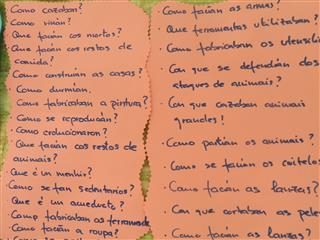 Como cazaban?
Como vivían?
Que facían cos mortos?
Que facían cos restos de
comida?
Como construían as casas?
Como durmían.
Como fabricaban a pintura?
Como se reproducían?
Como evolucionaron?
Que facían cos restos de
animais?
Que é un menhir?
Como se fan sedentarios?
Que é un aqueducto?
Como fabricaban as ferramentas
Como facían a roupa?
Como facían as armas?
Que ferramentas utilizaban?
Como fabricaban os utensilios
Con que se defendían dos
ataques de animais?
Con que cazaban animais
grandes!
Como partían os animais?
Como se facían os coitelos
Como facían as lanzas?
Con que cortaban as peles
Como facían as lanzas?